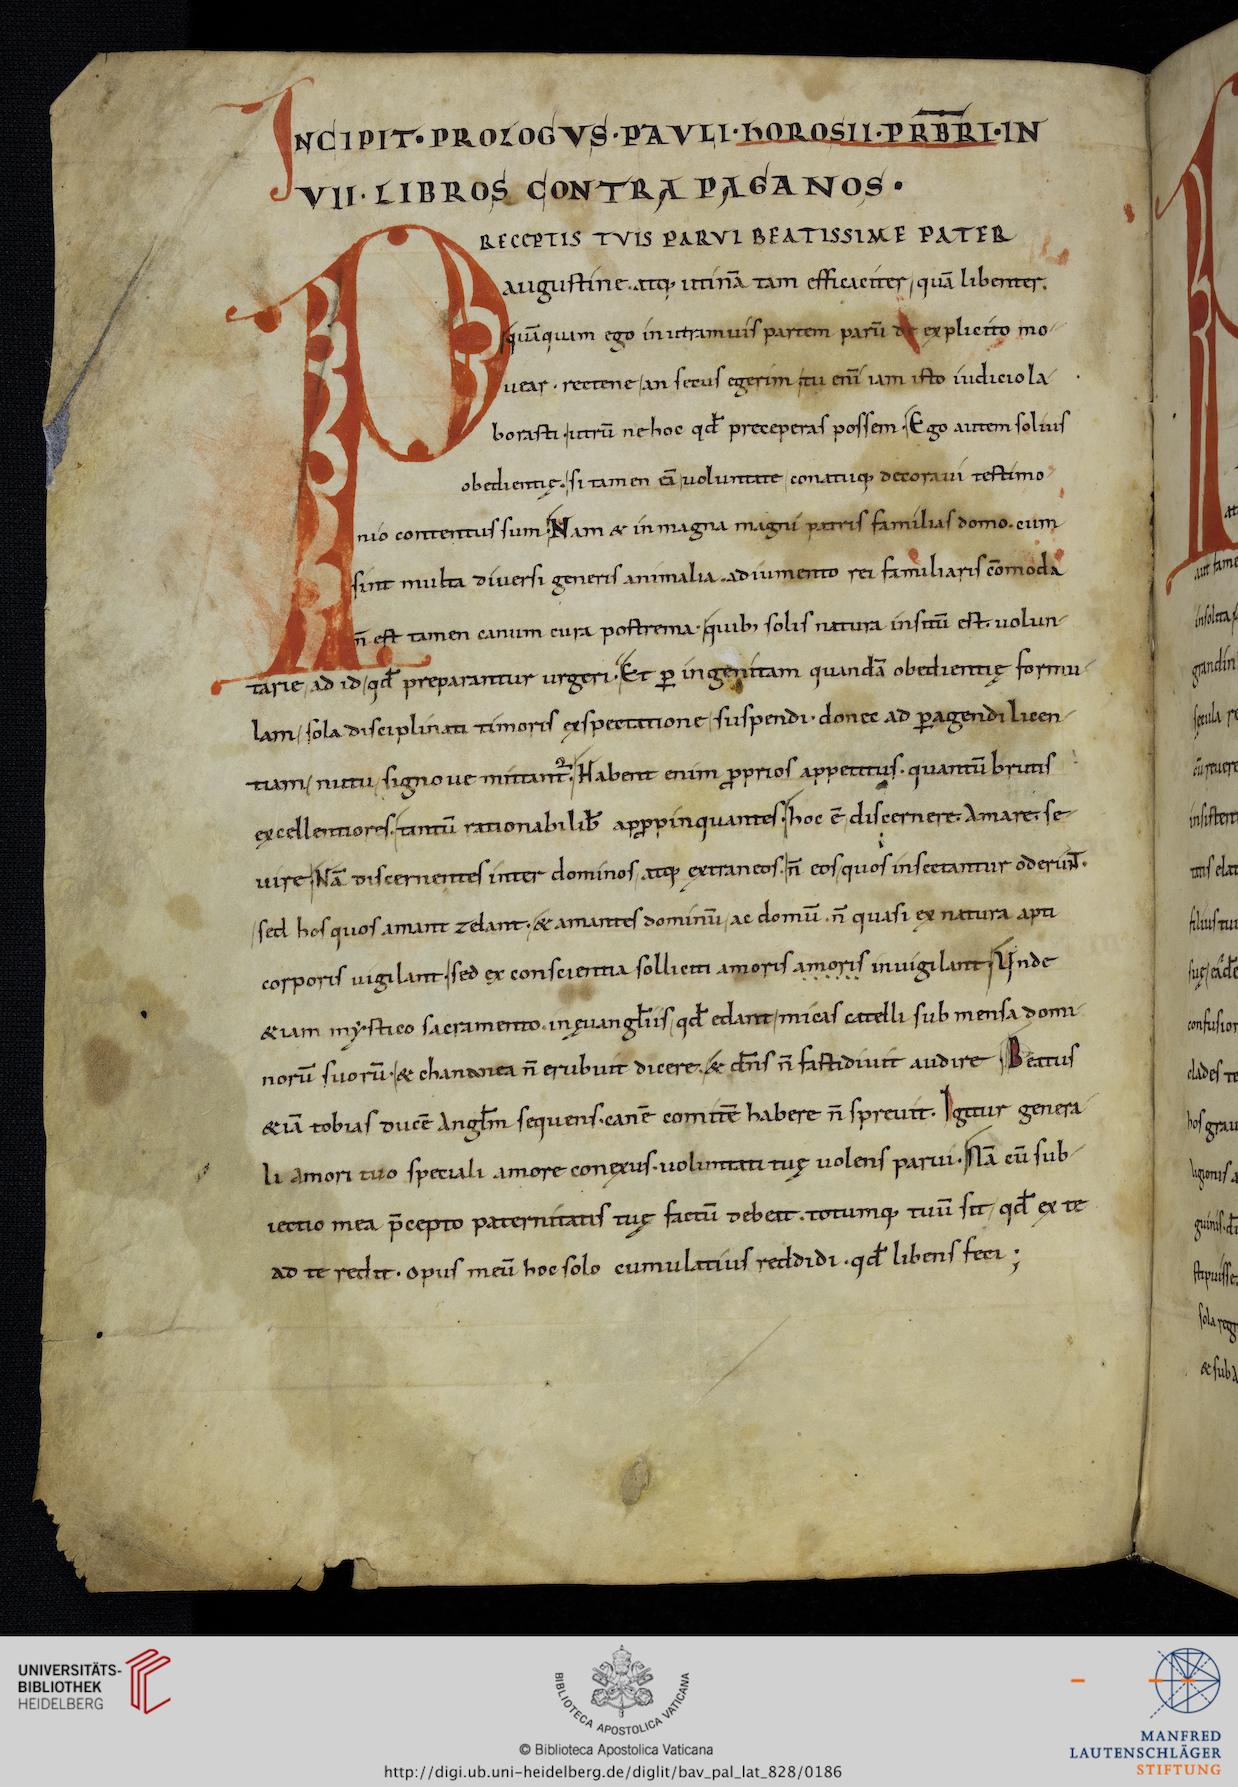 INCIPIT·PROLOGVS·PAVLI·HOROSII·PRB̅R̅I·IN
VII·LIBROS CONTRA PAGANOS·
PRECEPTIS TVIS PARVI BEATISSIME PATER
augustine. atq; utinā tam efficaciter, quā libenter.
quāquam ego in utramuis partem parū de explicito mo
uear· rectene, an secus egerim, tu enī iam isto iudicio la
borasti· utrū ne hoc qđ preceperas possem· Ego autem solius
obedientię· si tamen eā, uoluntate, conatuq; decoraui testimo
nio contentus sum· Nam & in magna magni patris familias domo. cum
sint multa diuersi generis animalia. adiumento rei familiaris cōmoda
n̄ est tamen canum cura postrema· quib; solis natura insitū est. uolun
tarie, ad id, qđ preparantur urgeri· Et ꝑ ingenitam quandā obedientię formu
lam, sola disciplinati timoris exspectatione, suspendi· donec ad ꝑagendi licen
tiam, nutu, signo ue mittant᷑· Habent enim ꝓprios appetitus· quantū brutis
excellentiores· tantū rationabilib; apꝓpinquantes· hoc ē, discernere. Amare. se
uire, Nā discernentes inter dominos, atq; extraneos· n̄ eos, quos insectantur oderunt·
sed hos quos amant zelant· & amantes dominū, ac domū. n̄ quasi ex natura apti
corporis uigilant· sed ex conscientia solliciti amoris amoris inuigilant· Unde
&iam mẏstico sacramento. in ęuangl̄iis, qđ edant, micas catelli sub mensa domi
norū suorū· & chananea n̄ erubuit dicere. & dn̄s n̄ fastidiuit audire· Beatus
&iā tobias ducē Angl̄m sequens. canē comitē habere n̄ spreuit. Igitur genera
li amori tuo speciali amore conexus· uoluntati tuę uolens parui· Nā cū sub
iectio mea p̄cepto paternitatis tuę factū debeat. totumq; tuū sit, qđ ex te
ad te redit· opus meū hoc solo cumulatius reddidi· qđ libens feci;
UNIVERSITÄTS-
BIBLIOTHEK
HEIDELBERG
BIBLIOTECA APOSTOLICA VATICANA
© Biblioteca Apostolica Vaticana
http://digi.ub.uni-heidelberg.de/diglit/bav_pal_lat_828/0186
MANFRED
LAUTENSCHLÄGER
STIFTUNG